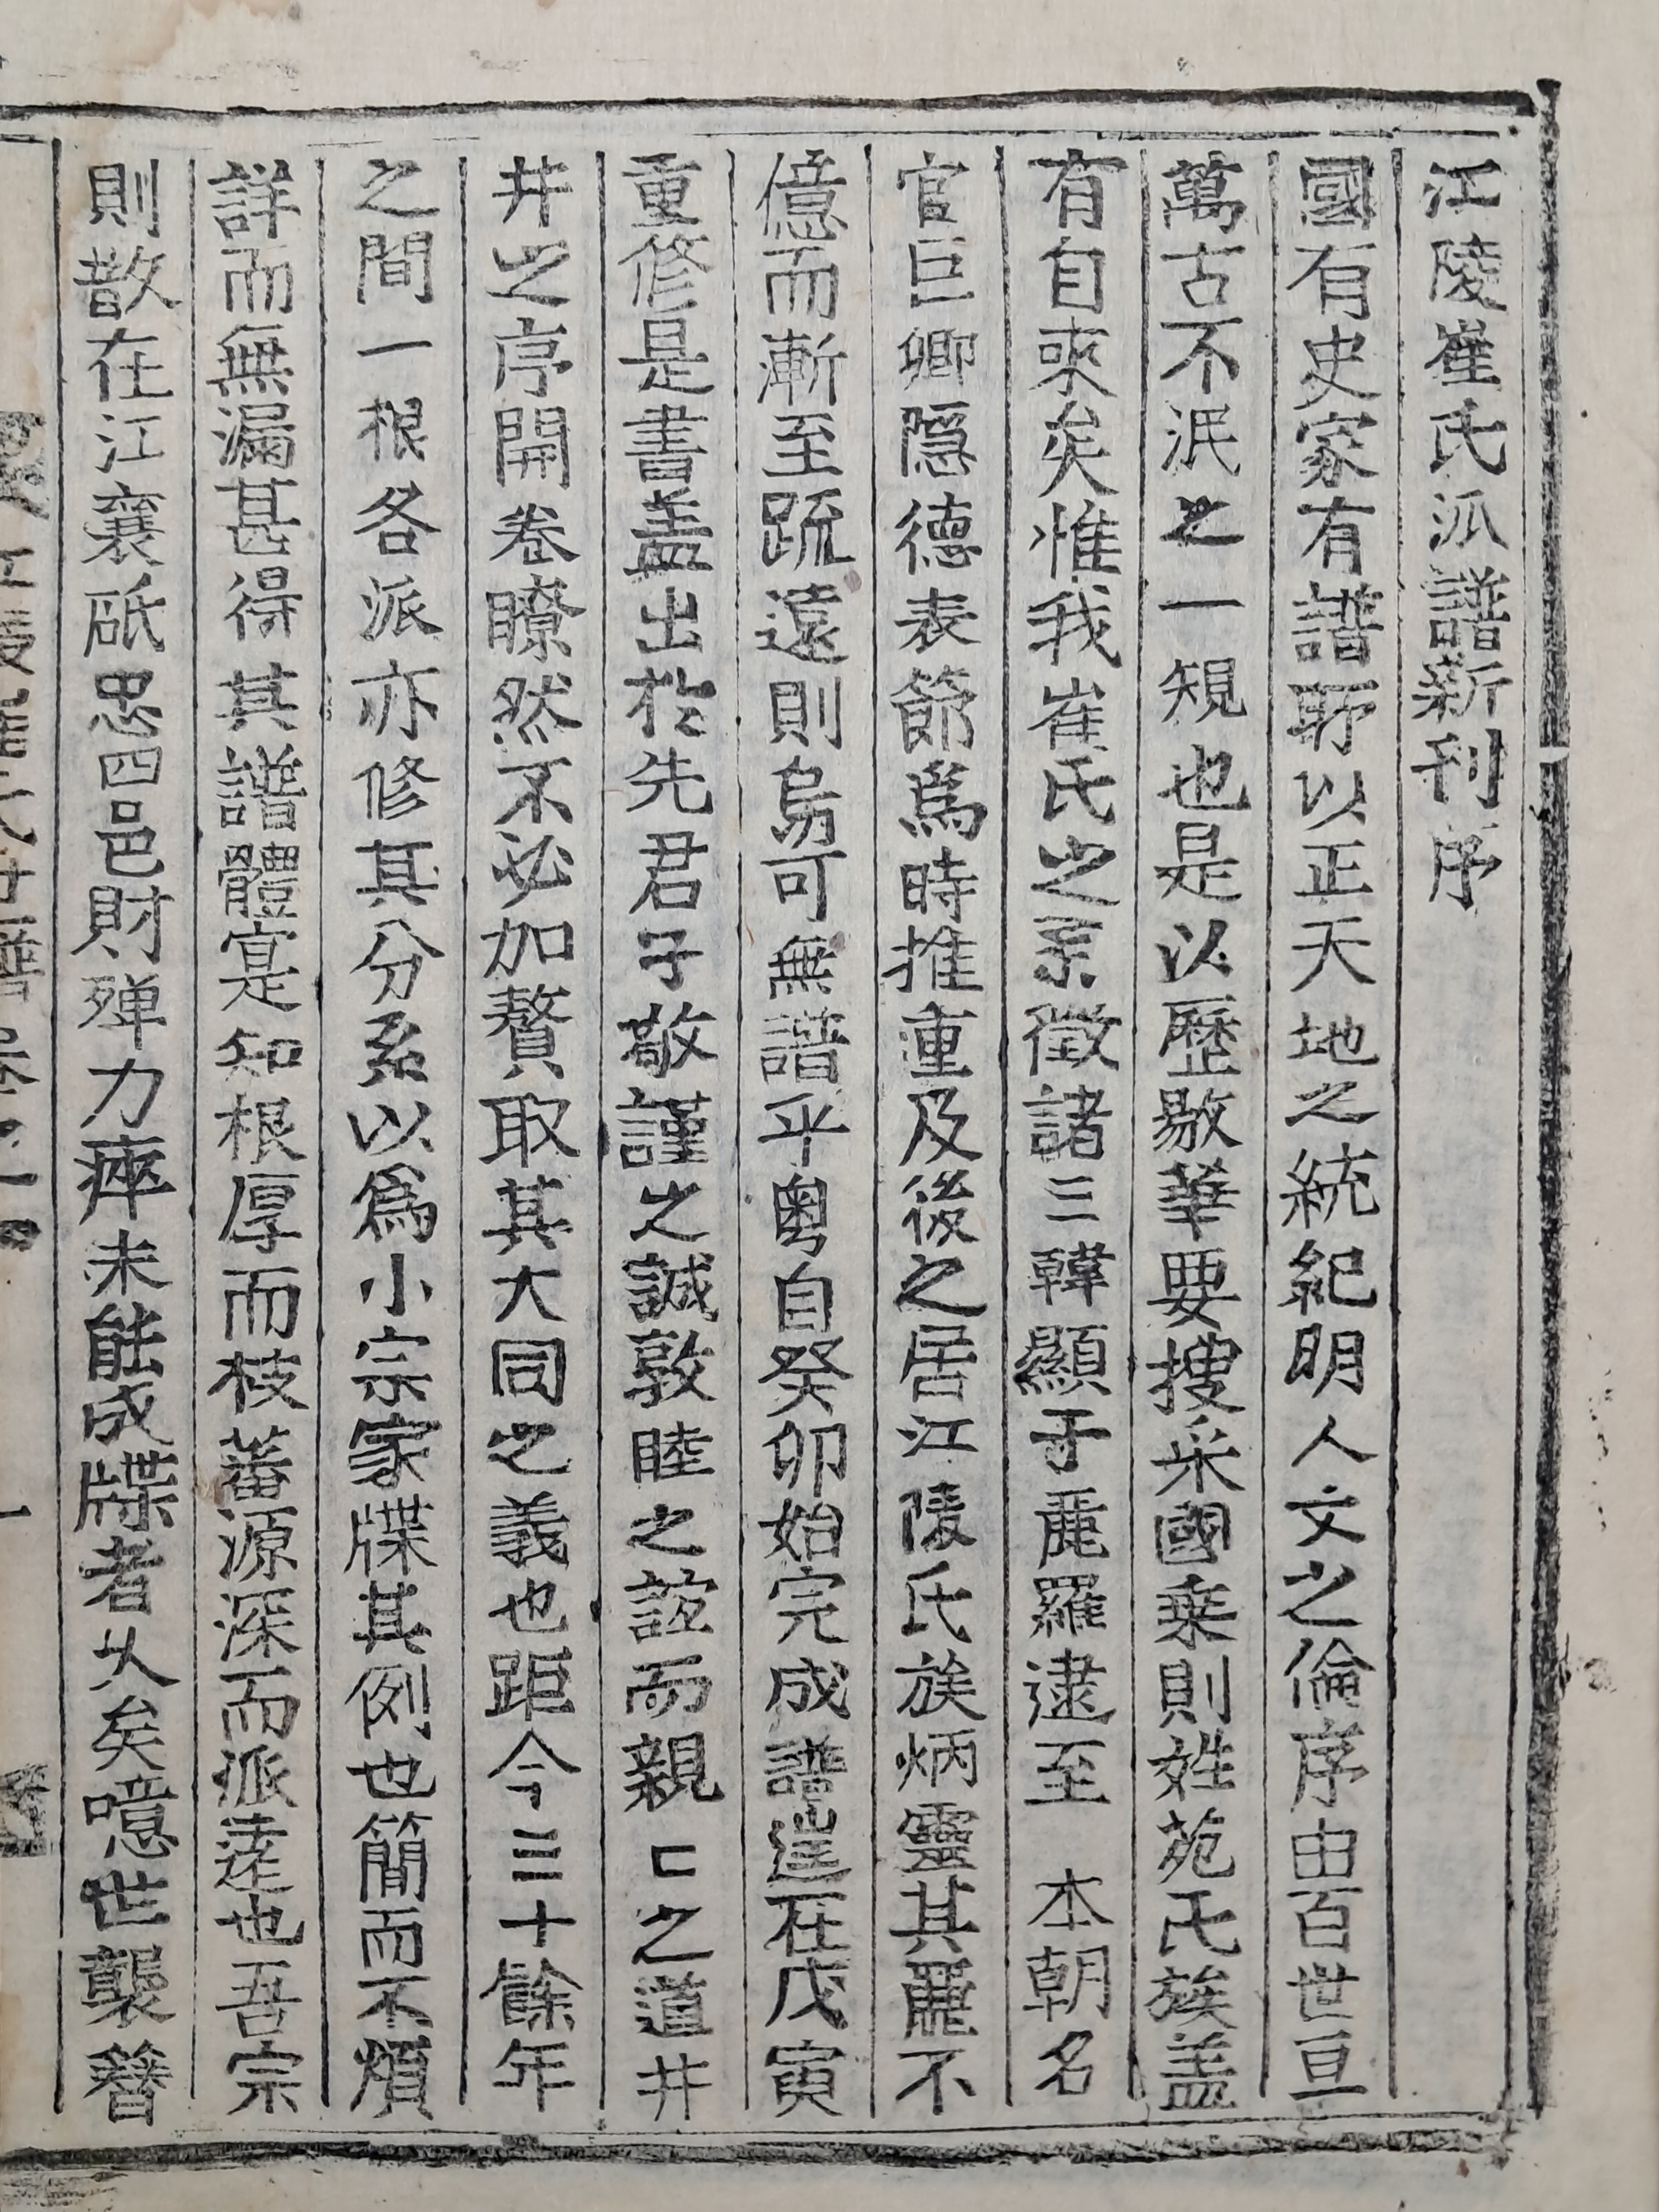 江陵崔氏派譜新刊序
國有史家有譜所以正天地之統紀明人文之倫序由百世亘
萬古不泯之一規也是以歷敭華要搜采國乗則姓苑氏族盖
有自來矣惟我崔氏之系徵諸三韓顯于麗羅逮至 本朝名
官巨卿隱德表節爲時推重及後之居江陵氏族炳靈其麗不
億而漸至疏遠則烏可無譜乎粤自癸卯始完成譜逹在戊寅
重修是書盖出於先君子敬謹之誠敦睦之誼而親匚之道井
井之序開卷瞭然不必加贅取其大同之義也距今三十餘年
之間一根各派亦修其分系以爲小宗家牒其例也簡而不煩
詳而無漏甚得其譜體寔知根厚而枝蕃源深而派逹也吾宗
則散在江襄砥忠四邑財殫力瘁未能成牒者久矣噫世襲簪